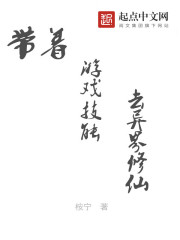 起点中文网
阅文集团旗下网站
带着
游戏技能
去异界修仙
桉宁 著